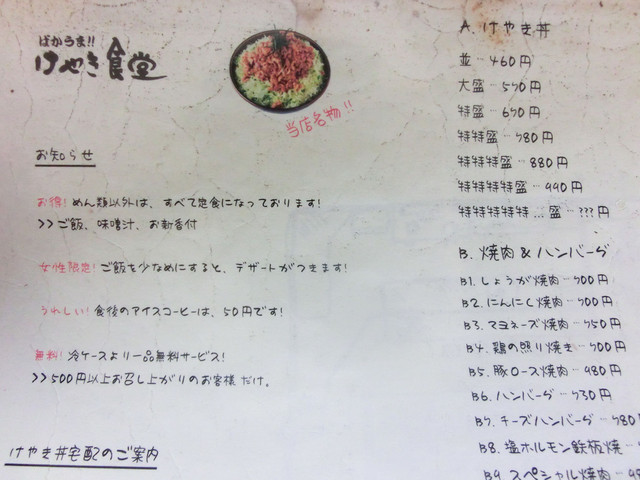 ばかうま!!
けやき食堂
当店名物!!
お知らせ
お得! めん類以外は、すべて定食になっております!
>>ご飯、味噌汁、お新香付
女性限定! ご飯を少なめにすると、デザートがつきます!
うれしい! 食後のアイスコーヒーは、50円です!
無料! 冷ケースより一品無料サービス!
>>500円以上お召し上がりのお客様だけ。
けやき丼宅配のご案内
A. けやき丼
並…460円
大盛…570円
特盛…670円
特特盛…780円
特特特盛…880円
特特特特盛…990円
特特特特特...盛…???円
B. 焼肉&ハンバーグ
B1. しょうが焼肉…700円
B2. にんにく焼肉…700円
B3. マヨネーズ焼肉…750円
B4. 鶏の照り焼き…700円
B5. 豚ロース焼肉…980円
B6. ハンバーグ…730円
B7. チーズハンバーグ…780
B8. 塩ホルモン鉄板焼…
B9. スペシャル焼肉…